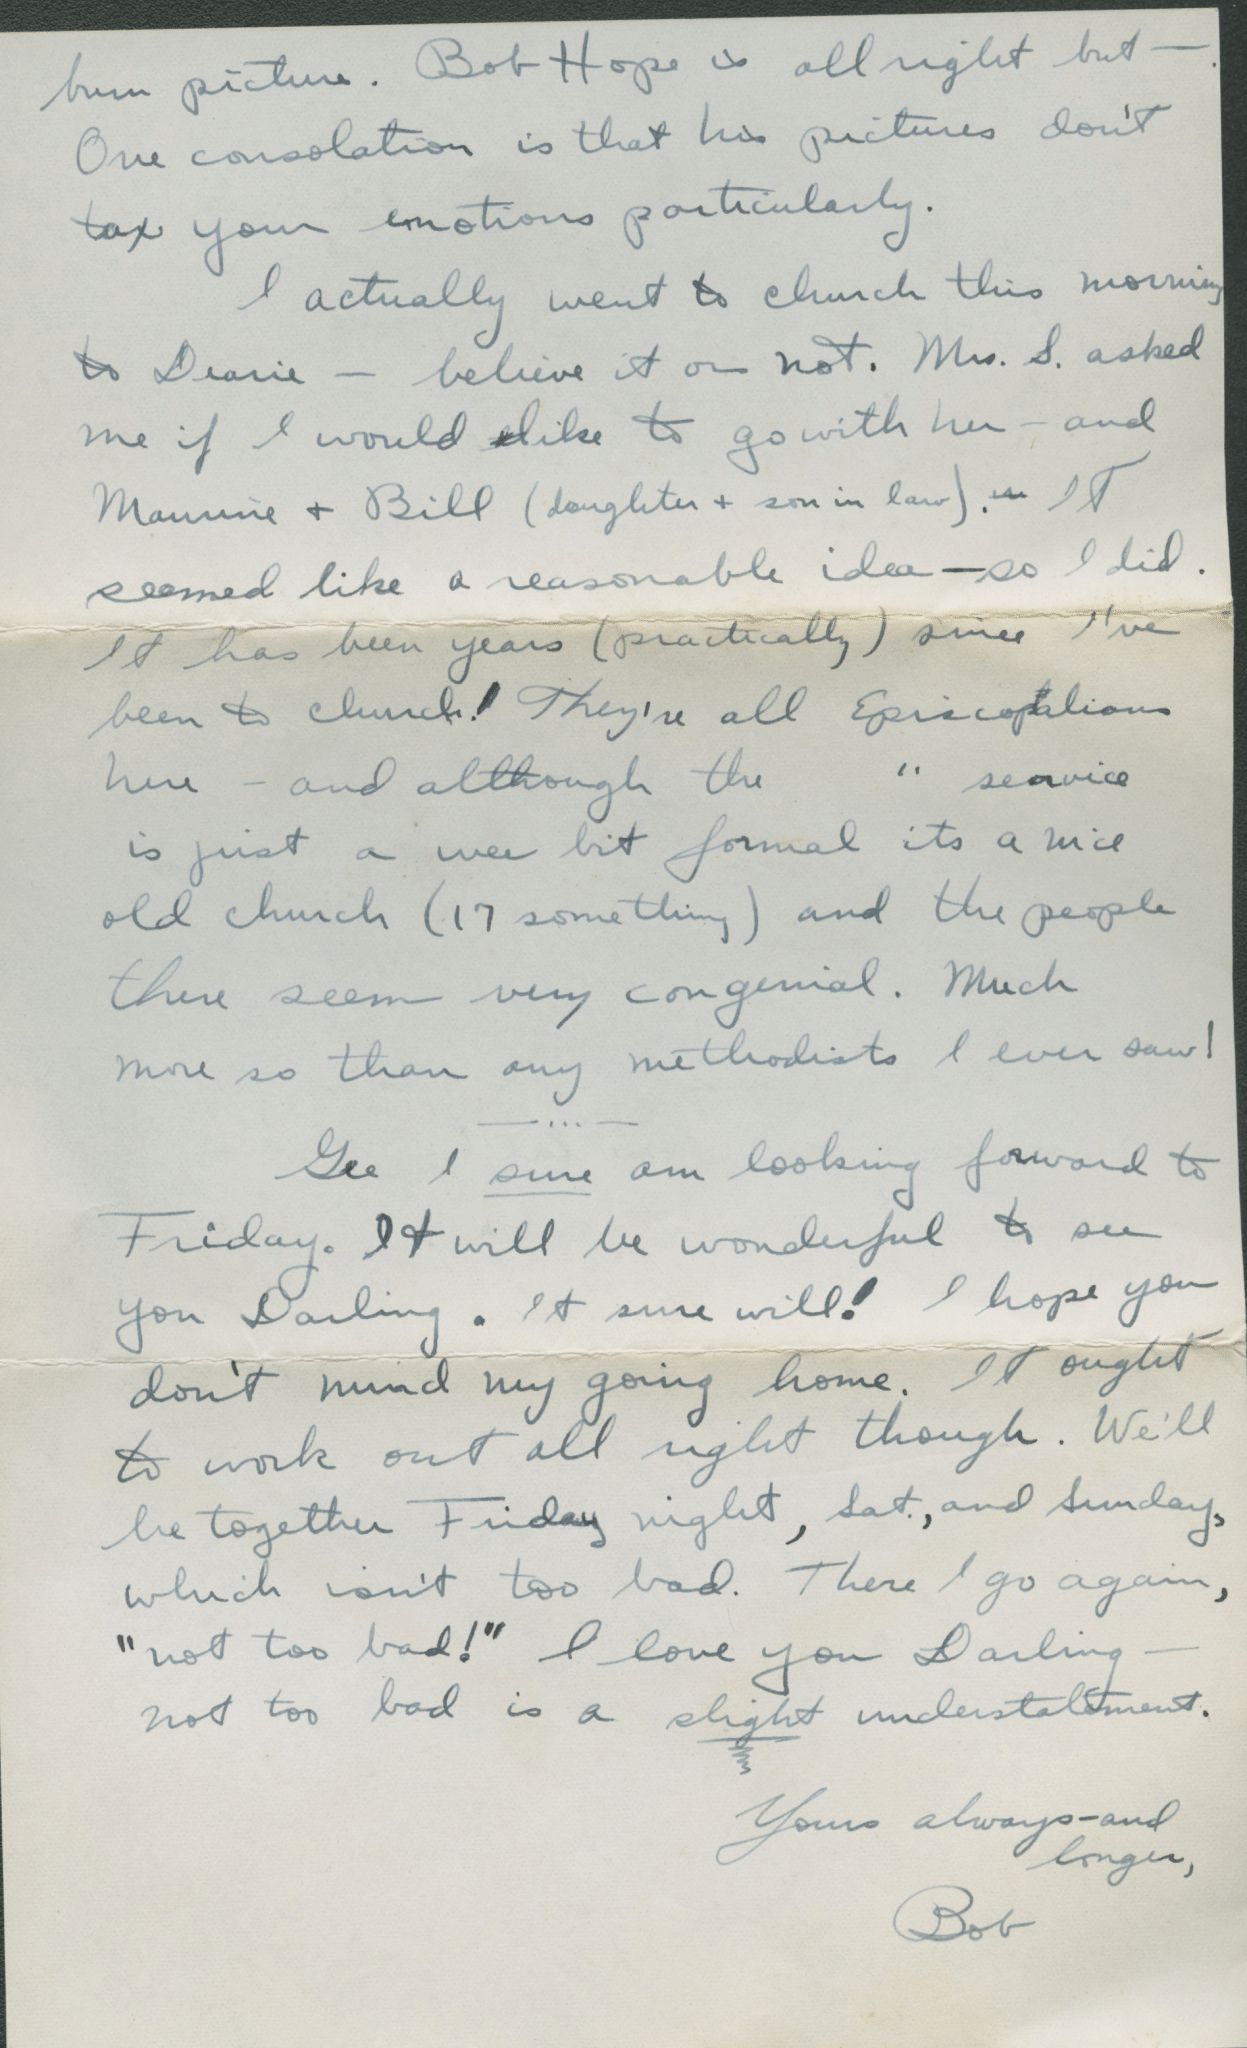 bum picture. Bob Hope is all right but —
One consolation is that his pictures don't
tax your emotions particularly.
I actually went to church this morning
to Dearie — believe it or not. Mrs. S. asked
me if I would like to go with her - and
Maurine + Bill (daughter + son in law). It
seemed like a reasonable idea — so I did.
It has been years (practically) since I've
been to church! They're all Episcopalians
here - and although the " service
is just a wee bit formal its a nice
old church (17 something) and the people
there seem very congenial. Much
more so than any methodists I ever saw!
— ... —
Gee I sure am looking forward to
Friday. It will be wonderful to see
you Darling. It sure will! I hope you
don't mind my going home. It ought
to work out all right though. We'll
be together Friday night, Sat., and Sunday,
which isn't too bad. There I go again,
"not too bad!" I love you Darling —
not too bad is a slight understatement.
Yours always-and
longer,
Bob